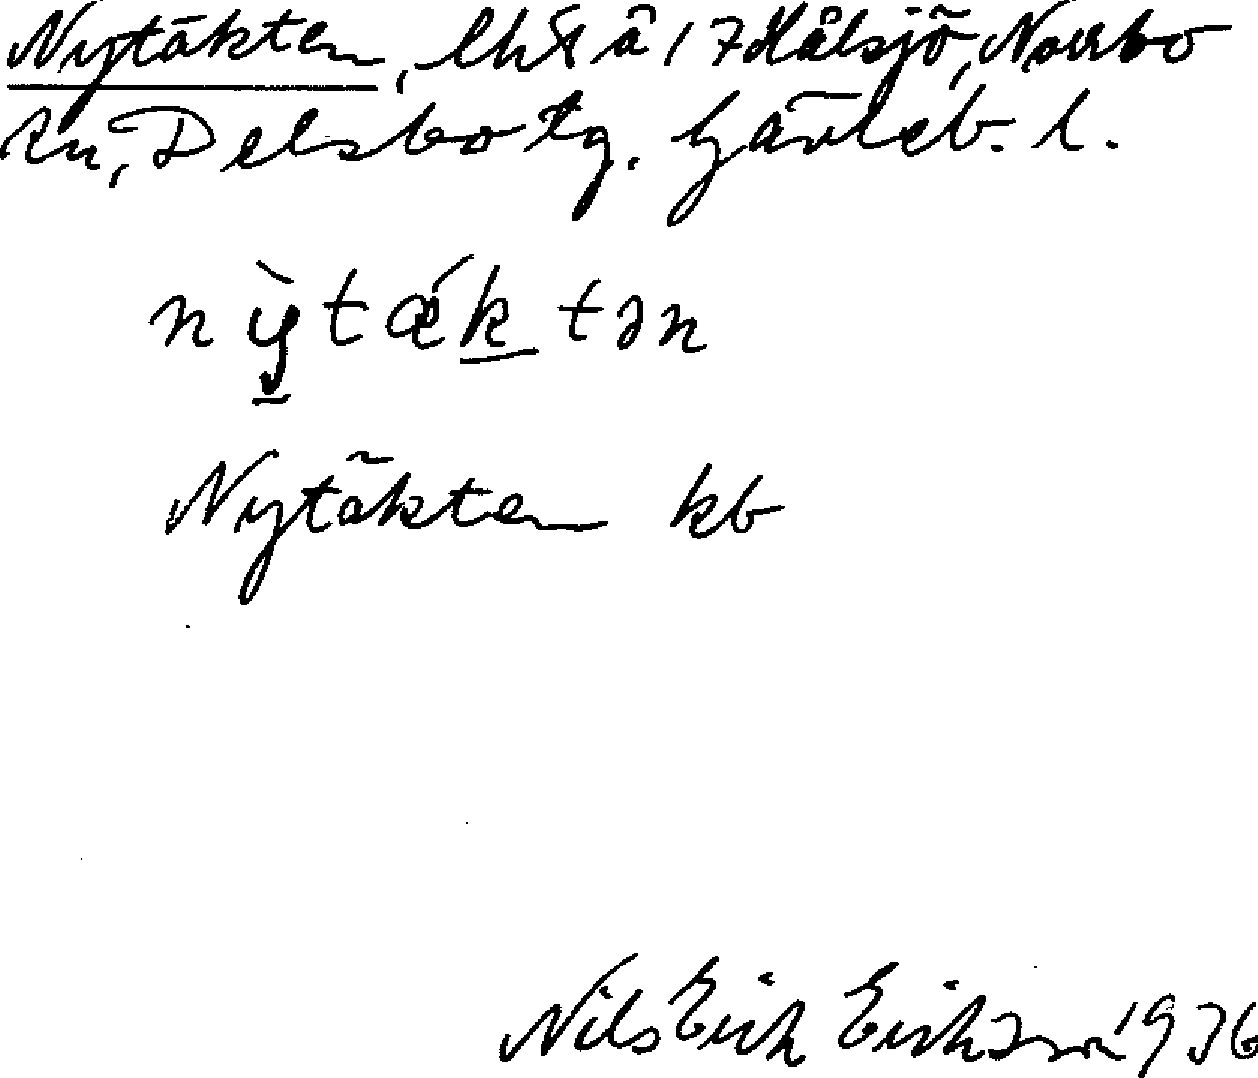 Nytäkten, lht å 17 Hålsjö, Norrbo
sn, Delsbo tg. Gävleb. l.
nỳtǽktən
Nytäkten kb
Nils Erik Erikson 1936